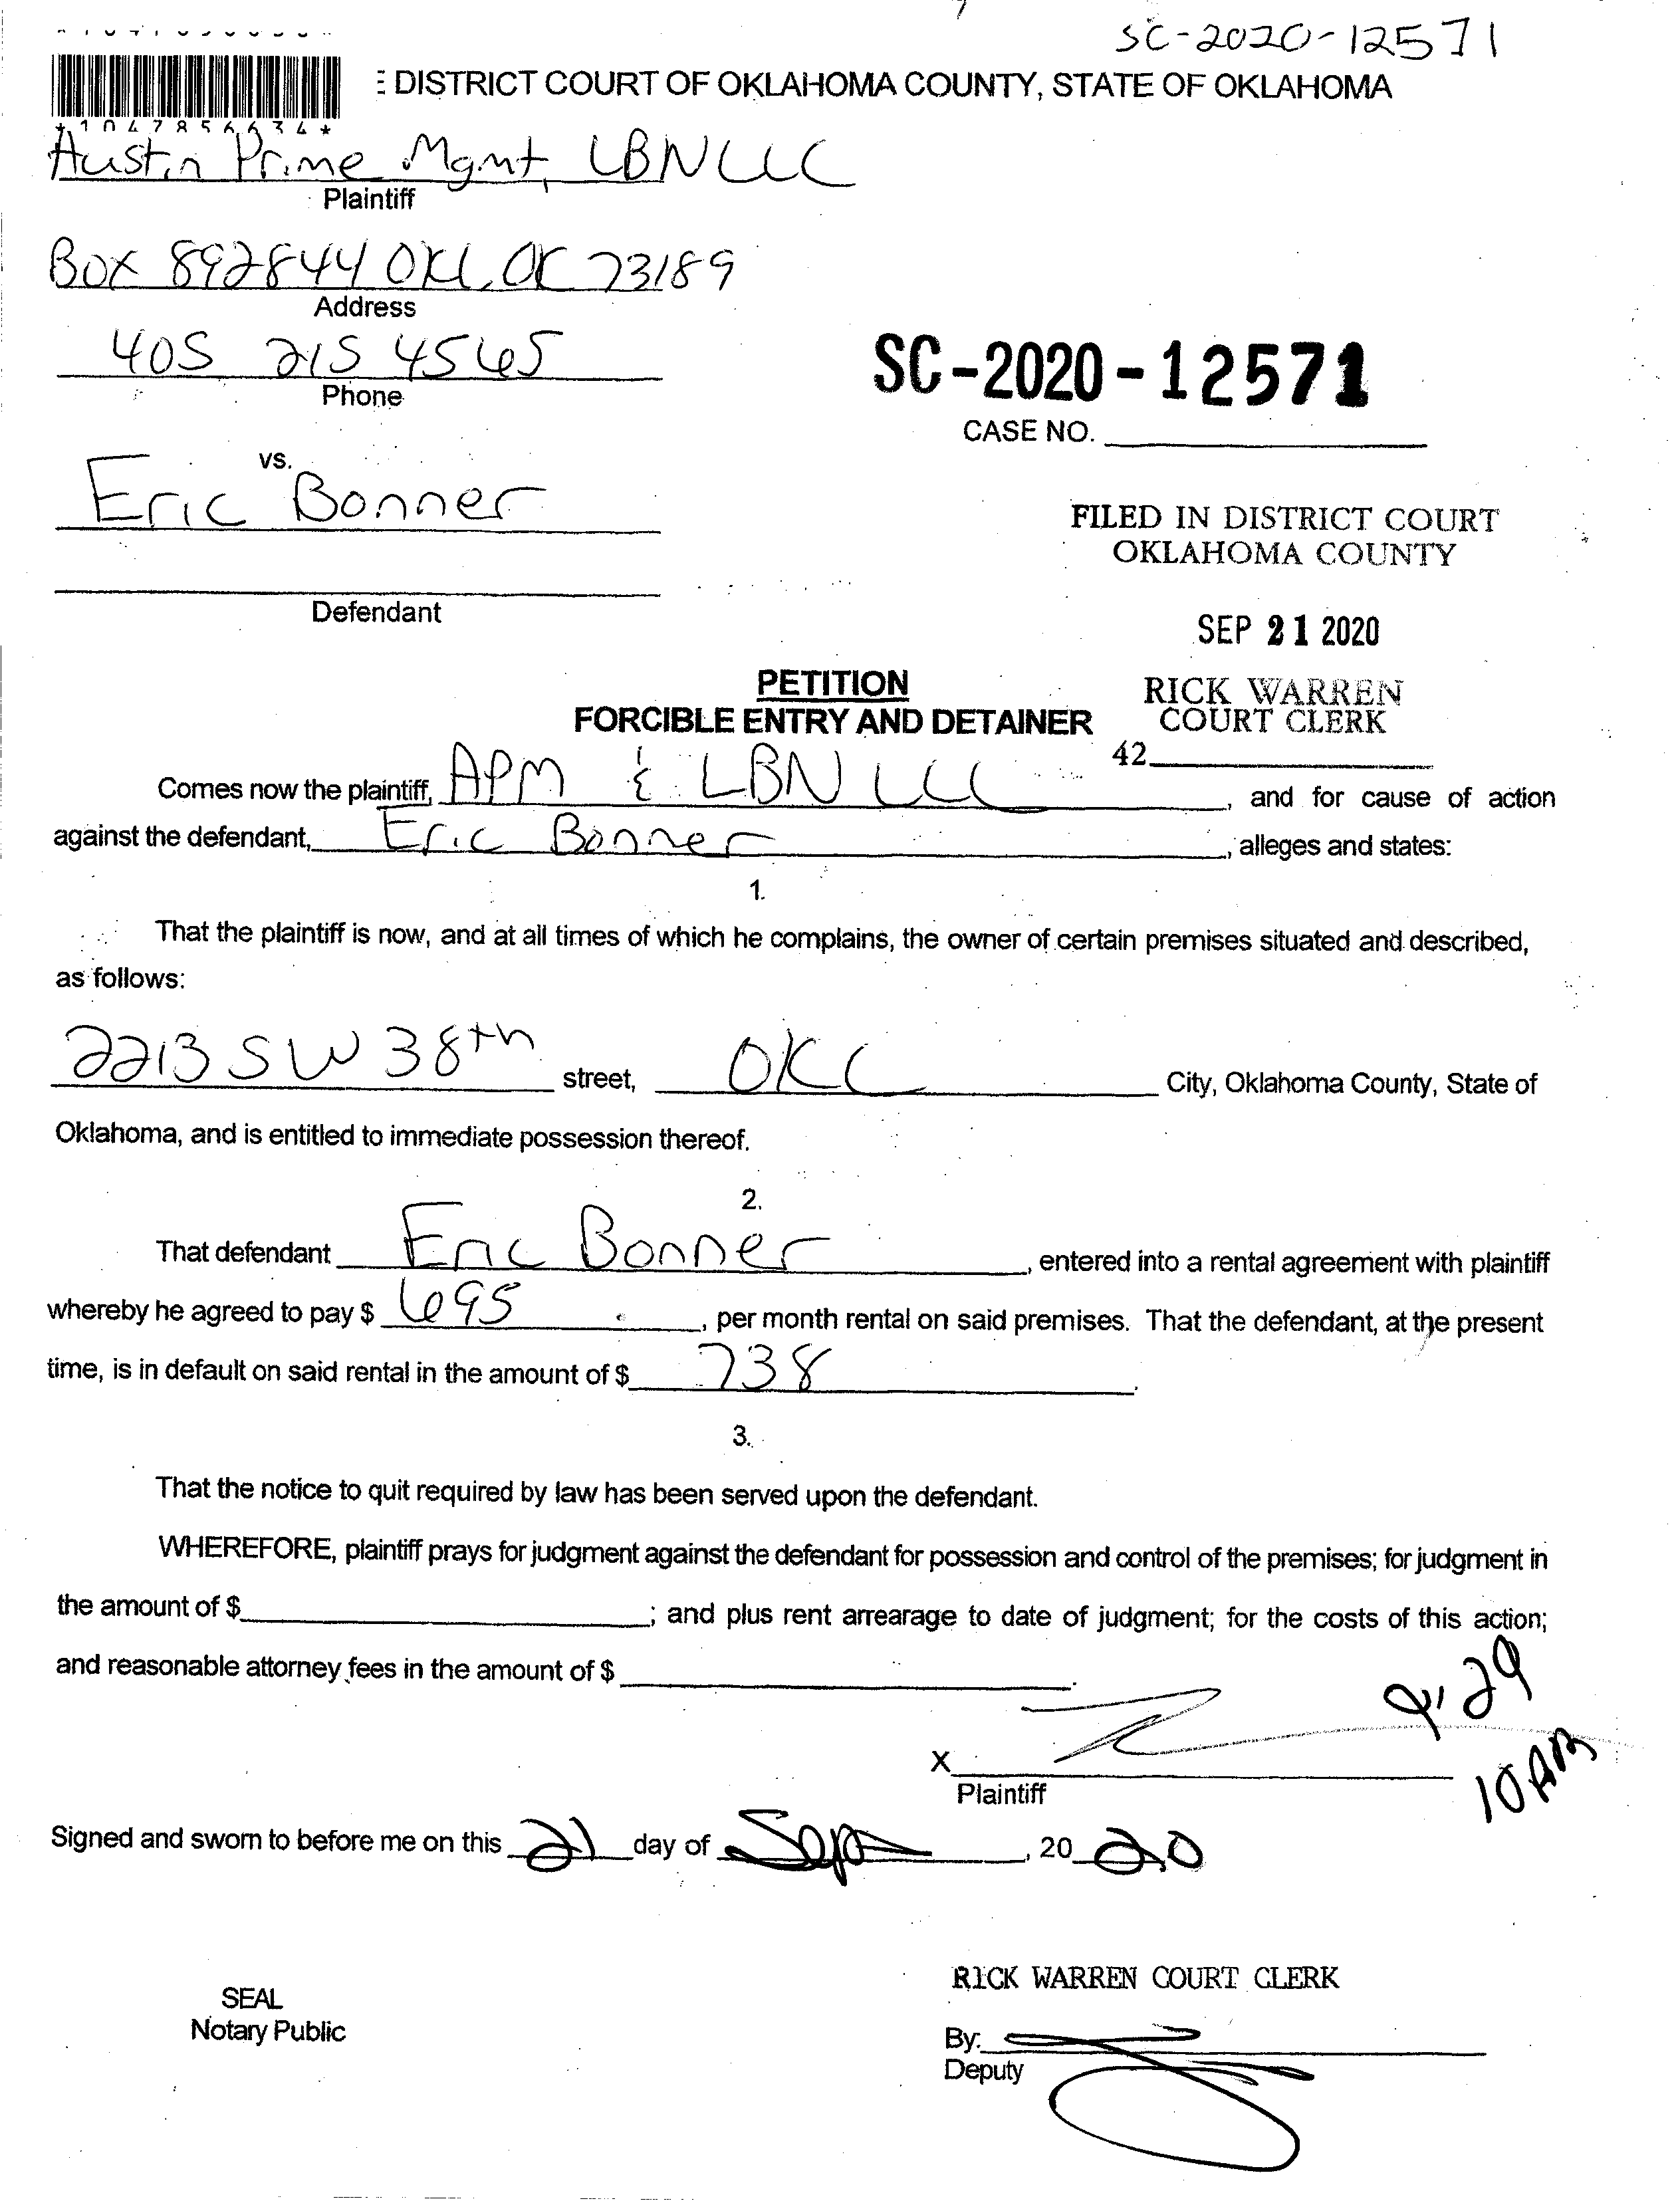 SC-2020-12571
E DISTRICT COURT OF OKLAHOMA COUNTY, STATE OF OKLAHOMA
*1047856634*
Austin Prime Mgmt, LBN LLC
Plaintiff
Box 892844 OKC, OK 73189
Address
405 215 4565
Phone
SC-2020-12571
CASE NO.
vs.
Eric Bonner
FILED IN DISTRICT COURT
OKLAHOMA COUNTY
Defendant
SEP 21 2020
PETITION
RICK WARREN
FORCIBLE ENTRY AND DETAINER
COURT CLERK
42
Comes now the plaintiff, APM & LBN LLC, and for cause of action
against the defendant, Eric Bonner, alleges and states:
1.
That the plaintiff is now, and at all times of which he complains, the owner of certain premises situated and described,
as follows:
2213 SW 38th street, OKC City, Oklahoma County, State of
Oklahoma, and is entitled to immediate possession thereof.
2.
That defendant Eric Bonner, entered into a rental agreement with plaintiff
whereby he agreed to pay $ 695, per month rental on said premises. That the defendant, at the present
time, is in default on said rental in the amount of $ 738.
3.
That the notice to quit required by law has been served upon the defendant.
WHEREFORE, plaintiff prays for judgment against the defendant for possession and control of the premises; for judgment in
the amount of $ ; and plus rent arrearage to date of judgment; for the costs of this action;
and reasonable attorney fees in the amount of $ .
9-29
10 AM
X
Plaintiff
Signed and sworn to before me on this 21 day of Sept, 20 20
RICK WARREN COURT CLERK
SEAL
Notary Public
By:
Deputy